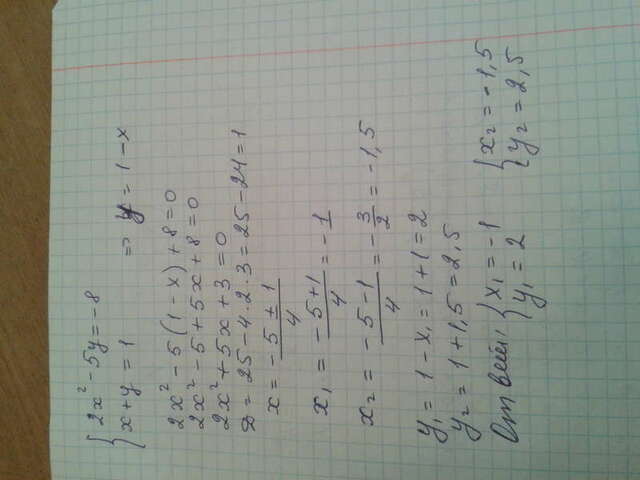 { 2x² - 5y = -8
x + y = 1 ⇒ y = 1 - x
2x² - 5(1 - x) + 8 = 0
2x² - 5 + 5x + 8 = 0
2x² + 5x + 3 = 0
D = 25 - 4·2·3 = 25 - 24 = 1
x = (-5 ± 1)/4
x₁ = (-5 + 1)/4 = -1
x₂ = (-5 - 1)/4 = -3/2 = -1,5
y₁ = 1 - x₁ = 1 + 1 = 2
y₂ = 1 + 1,5 = 2,5
Ответ: { x₁ = -1 { x₂ = -1,5
y₁ = 2 y₂ = 2,5